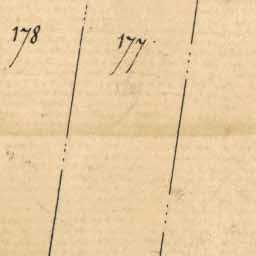 178
177